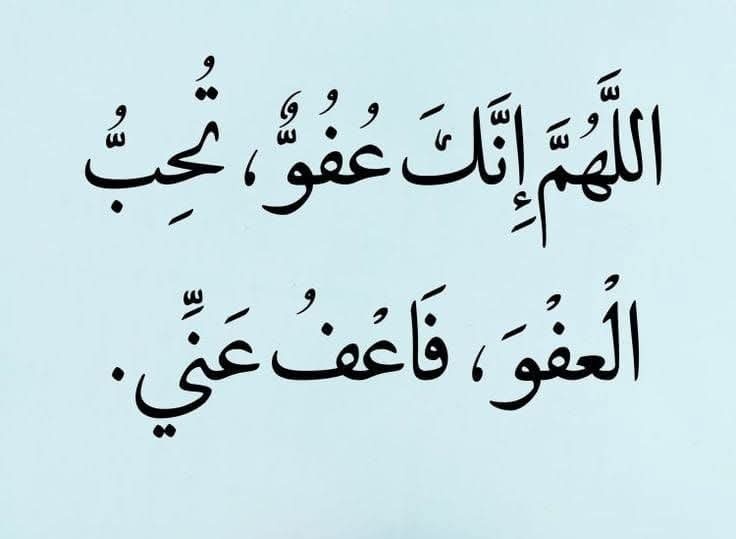 اللَّهُمَّ إِنَّكَ عُفُوٌّ، تُحِبُّ
الْعفْوَ، فَاعْفُ عَنِّي.